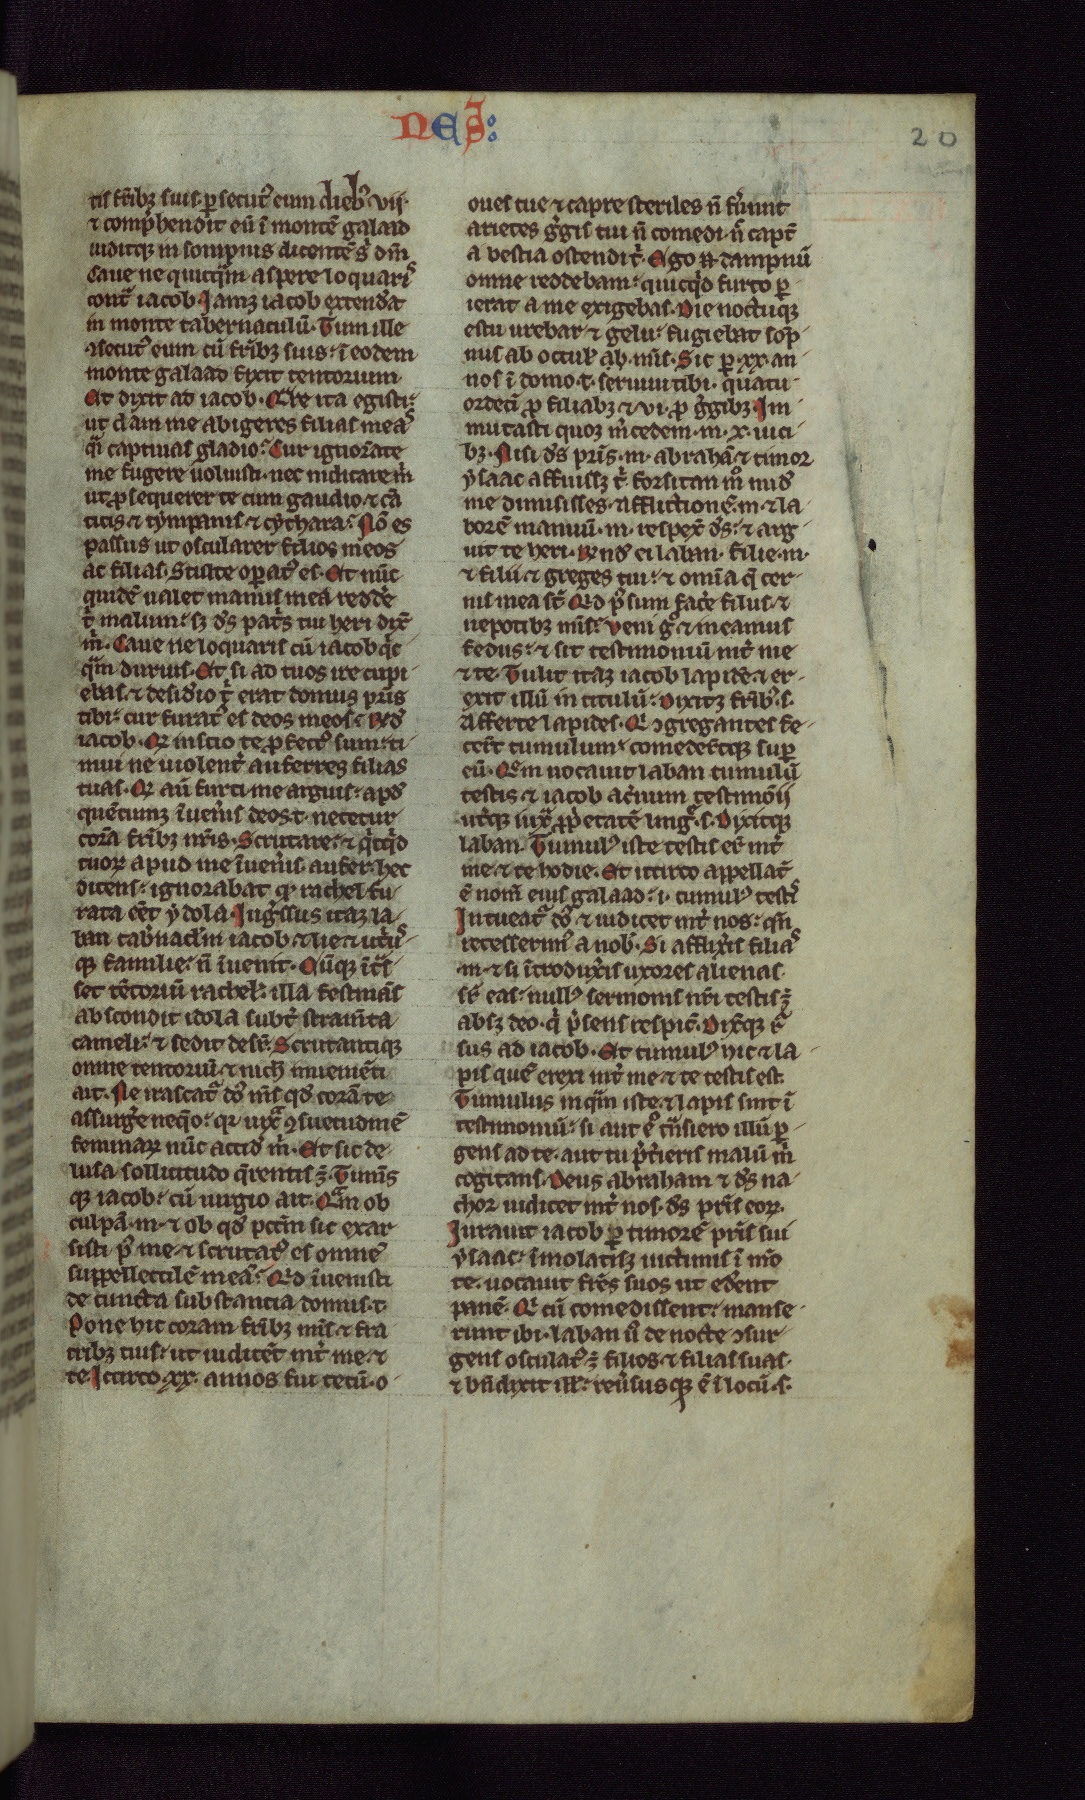 NES:
20
tis fr̄ibꝫ suis. ꝑsecut᷒ eum dieb᷒ vii.
⁊ comp̄hendit eū ī montē galaad
uiditqꝫ in sompnis dicentē s̓ dn̄m
Caue ne quicq̄m aspere loquaris
cont̄ iacob Iamqꝫ iacob extenderat
in monte tabernaculū. Cumqꝫ ille
ꝯsecut᷒ eum cū fr̄ibꝫ suis: ī eodem
monte galaad fixit tentorium.
Et dixit ad iacob. Qͬre ita egisti:
ut clam me abigeres filias meas
qͣi captiuas gladio? Cur ignorāte
me fugere uoluisti. nec indicare m̄
ut ꝓsequerer te cum gaudio ⁊ cā
ticis ⁊ tympanis ⁊ cythara? Nō es
passus ut oscularer filios meos
ac filias. Stulte oꝑat᷒ es. Et nūc
quidē ualet manus mea redde
t̄ malum: sꝫ ds̄ pat̄s tui heri dix̄
m̄. Caue ne loquaris cū iacob q̄c
q̄m durius. Et si ad tuos ire cupi
ebas. ⁊ desid̄io t̄ erat domus pr̄is
tibi: cur furat᷒ es deos meos? Rn̄d
iacob. Qd̄ inscio te ꝓfect᷒ sum: ti
mui ne uiolent̄ auferres filias
tuas. Qd̄ aū furti me arguis: apd̄
quēcumqꝫ īuen̄is deos. t. necetur
corā fr̄ibꝫ nr̄is. Scrutare: ⁊ qͥcqͥd
tuoꝝ apud me īuen̄is. aufer. hec
dicens: ignorabat qd̄ rachel fu-
rata eēt ydola. Ingressus itaqꝫ la-
ban tab̄naclm̄ iacob ⁊ lie ⁊ ut̄ius
qꝫ familie: n̄ īuenit. Cūqꝫ īt̄s
set tētoriū rachel: illa festinās
abscondit idola subt̄ stram̄ta
cameli: ⁊ sedit desup̄. Scrutantiqꝫ
omne tentoriū ⁊ nich̄ inuenienti
ait. Ne irascat̄ dn̄s m̄s qd̄ corā te
assurgere neqͦo: qr iuxͣ ꝯsuetudinē
feminaꝝ nūc accid̄ m̄. Et sic de-
lusa sollicitudo q̄rentis ē. Tumēs
qꝫ iacob: cū iurgio ait. Qͣm ob
culpā. m. ⁊ ob qd̄ pcc̄m sic exar
sisti p᷒ me ⁊ scrutat᷒ es omnē
suppellectilē meā? Qd̄ īuenisti
de cuncta substantia domus. t.
Pone hic coram fr̄ibꝫ m̄is ⁊ fra
tribꝫ tuis: ut iudicēt int̄ me ⁊
te Iccirco xx. annos fui tecū. o-
oues tue ⁊ capre steriles n̄ fuerunt
arietes gͤgis tui n̄ comedi. n̄ capt̄
a bestia ostendi t̄. Ego dampnū
omne reddebam: quicqͥd furto ꝑ
ierat a me exigebas. Die noctuqꝫ
estu urebar ⁊ gelu: fugiebat sop̄
nus ab oculis m̄is. Sic ꝑ xx. an-
nos ī domo. t. seruiui tibi. quatu-
ordeci ꝓ filiabꝫ ⁊ vi. ꝓ gͤgibꝫ. Im
mutasti quoqꝫ m̄cedem. m. x. uici
bꝫ. Nisi ds̄ pr̄is. m. abrahā ⁊ timor
ysaac affuissꝫ t̄. forsitan mͦ nud̄
me dimisisses. afflictionē. m. ⁊ la-
borē manuū. m. respex̄ ds̄: ⁊ arg-
uit te heri. Rn̄d ei laban. filie. m.
⁊ filii ⁊ greges tui: ⁊ omīa q̄ cer-
nis mea st̄. Qd̄ possum face̓ filiis ⁊
nepotibꝫ m̄is? Veni gͦ ⁊ ineamus
fedus: ⁊ sit testimoniū int̄ me
⁊ te. Tulit itaqꝫ iacob lapidē ⁊ er-
exit illū in titulū: Dixitqꝫ fr̄ibꝫ. s.
Afferte lapides. Qi ꝯgregantes fe-
cer̄t tumulum: comeder̄tqꝫ sup̄
eū. Qͣm uocauit laban tumulū
testis ⁊ iacob ac̓uum testimōii
ut̄qꝫ iuxͣ ꝓp̄etatē linge̓. s. Dixitqꝫ
laban. Tumul᷒ iste testis er̄ int̄
me. ⁊ te hodie. Et iccirco appellat̄
ē nom̄ eius galaad: i. tumul᷒ testis
Intueat̄ dn̄s ⁊ iudicet int̄ nos: qn̄
recesserim᷒ a nob̄. Si afflixeris filias
m. ⁊ si ītrodux̄is uxores alienas
sup̄ eas: null᷒ sermonis nr̄i testis ē
absqꝫ deo. qͥ p̄sens respic̄. Dixitqꝫ r̄
sus ad iacob. Et tumul᷒ hic ⁊ la
pis quē erexi int̄ me ⁊ te testis est.
Tumulus inqͣm iste ⁊ lapis sint ī
testimoniū: si aut eͦ tn̄siero illū ꝑ
gens ad te. aut tu p̄t̄ieris malū m̄
cogitans. Deus abraham ⁊ ds̄ na-
chor iudicet int̄ nos. ds̄ pr̄is eoꝝ.
Iurauit iacob ꝑ timorē pr̄is sui
ysaac: īmolatisqꝫ uictimis ī mō
te. uocauit fr̄es suos ut ederent
panē. Qi cū comedissent: manse-
runt ibi. laban u̓o de nocte ꝯsur-
gens osculat᷒ ē filios ⁊ filias suas.
⁊ bn̄dixit ill̄: reu̓susqꝫ ē ī locū. s.